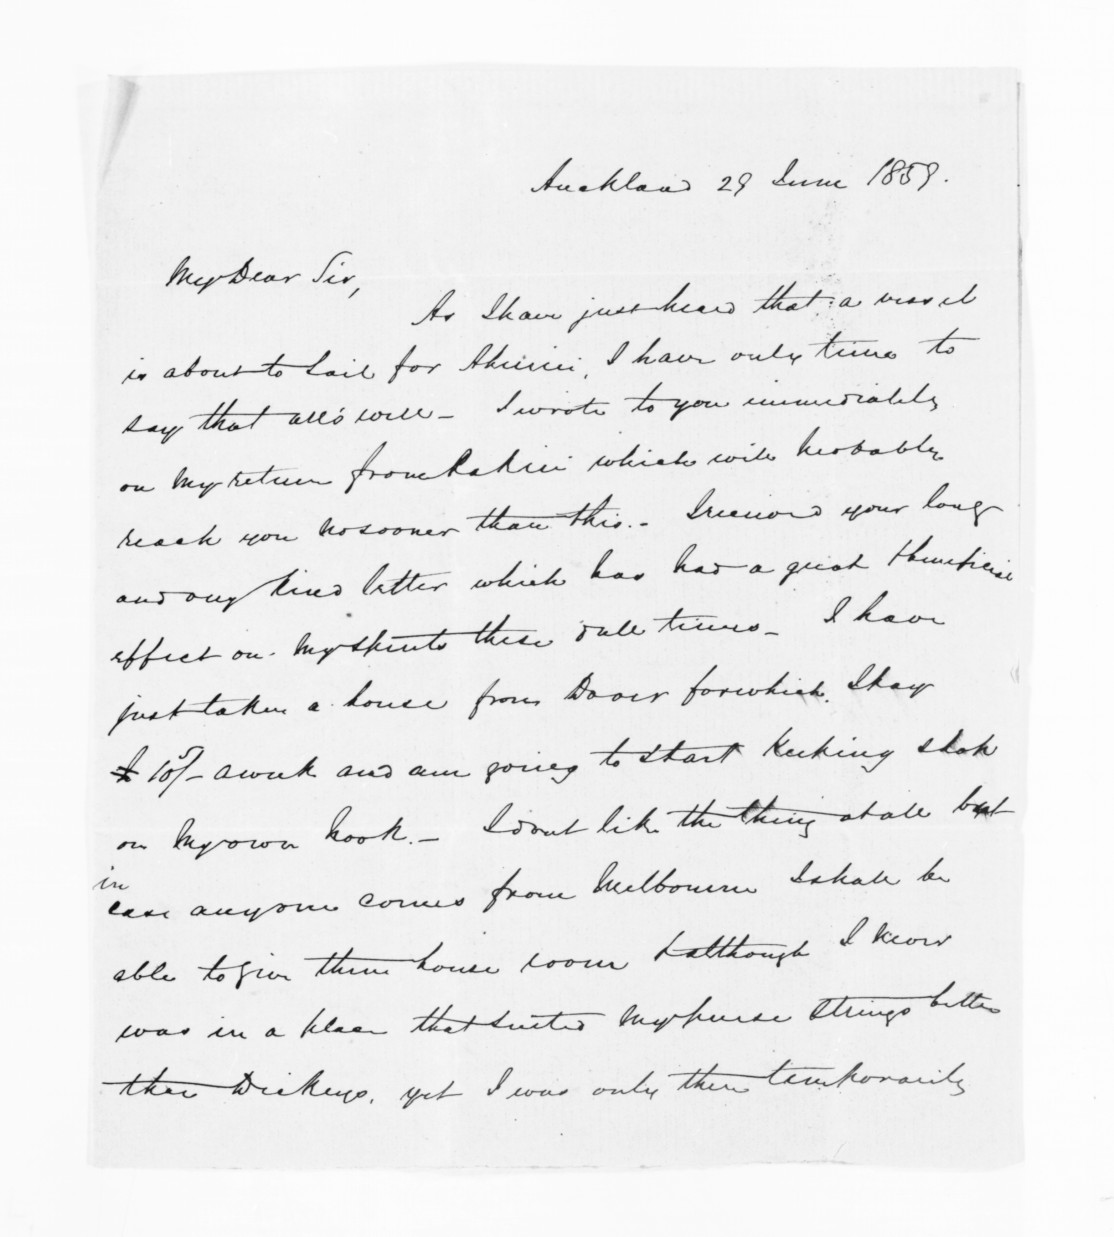 Auckland 29 June 1859.
My Dear Sir,
As I have just heard that a vessel
is about to sail for Ahuriri, I have only time to
say that all's well - I wrote to you immediately
on my return from which will probably
reach you no sooner than this. - I received your long
and very kind letter which has had a great & beneficial
effect on my spirits these dull times - I have
just taken a house from for which I pay
10/- a week and am going to start keeping shop
on my own hook. - I dont like the thing at all but
in
case anyone comes from Melbourne I shall be
able to give them house room & although I
was in a place that suited my purse strings better
than Dickeys, yet I was only there temporarily